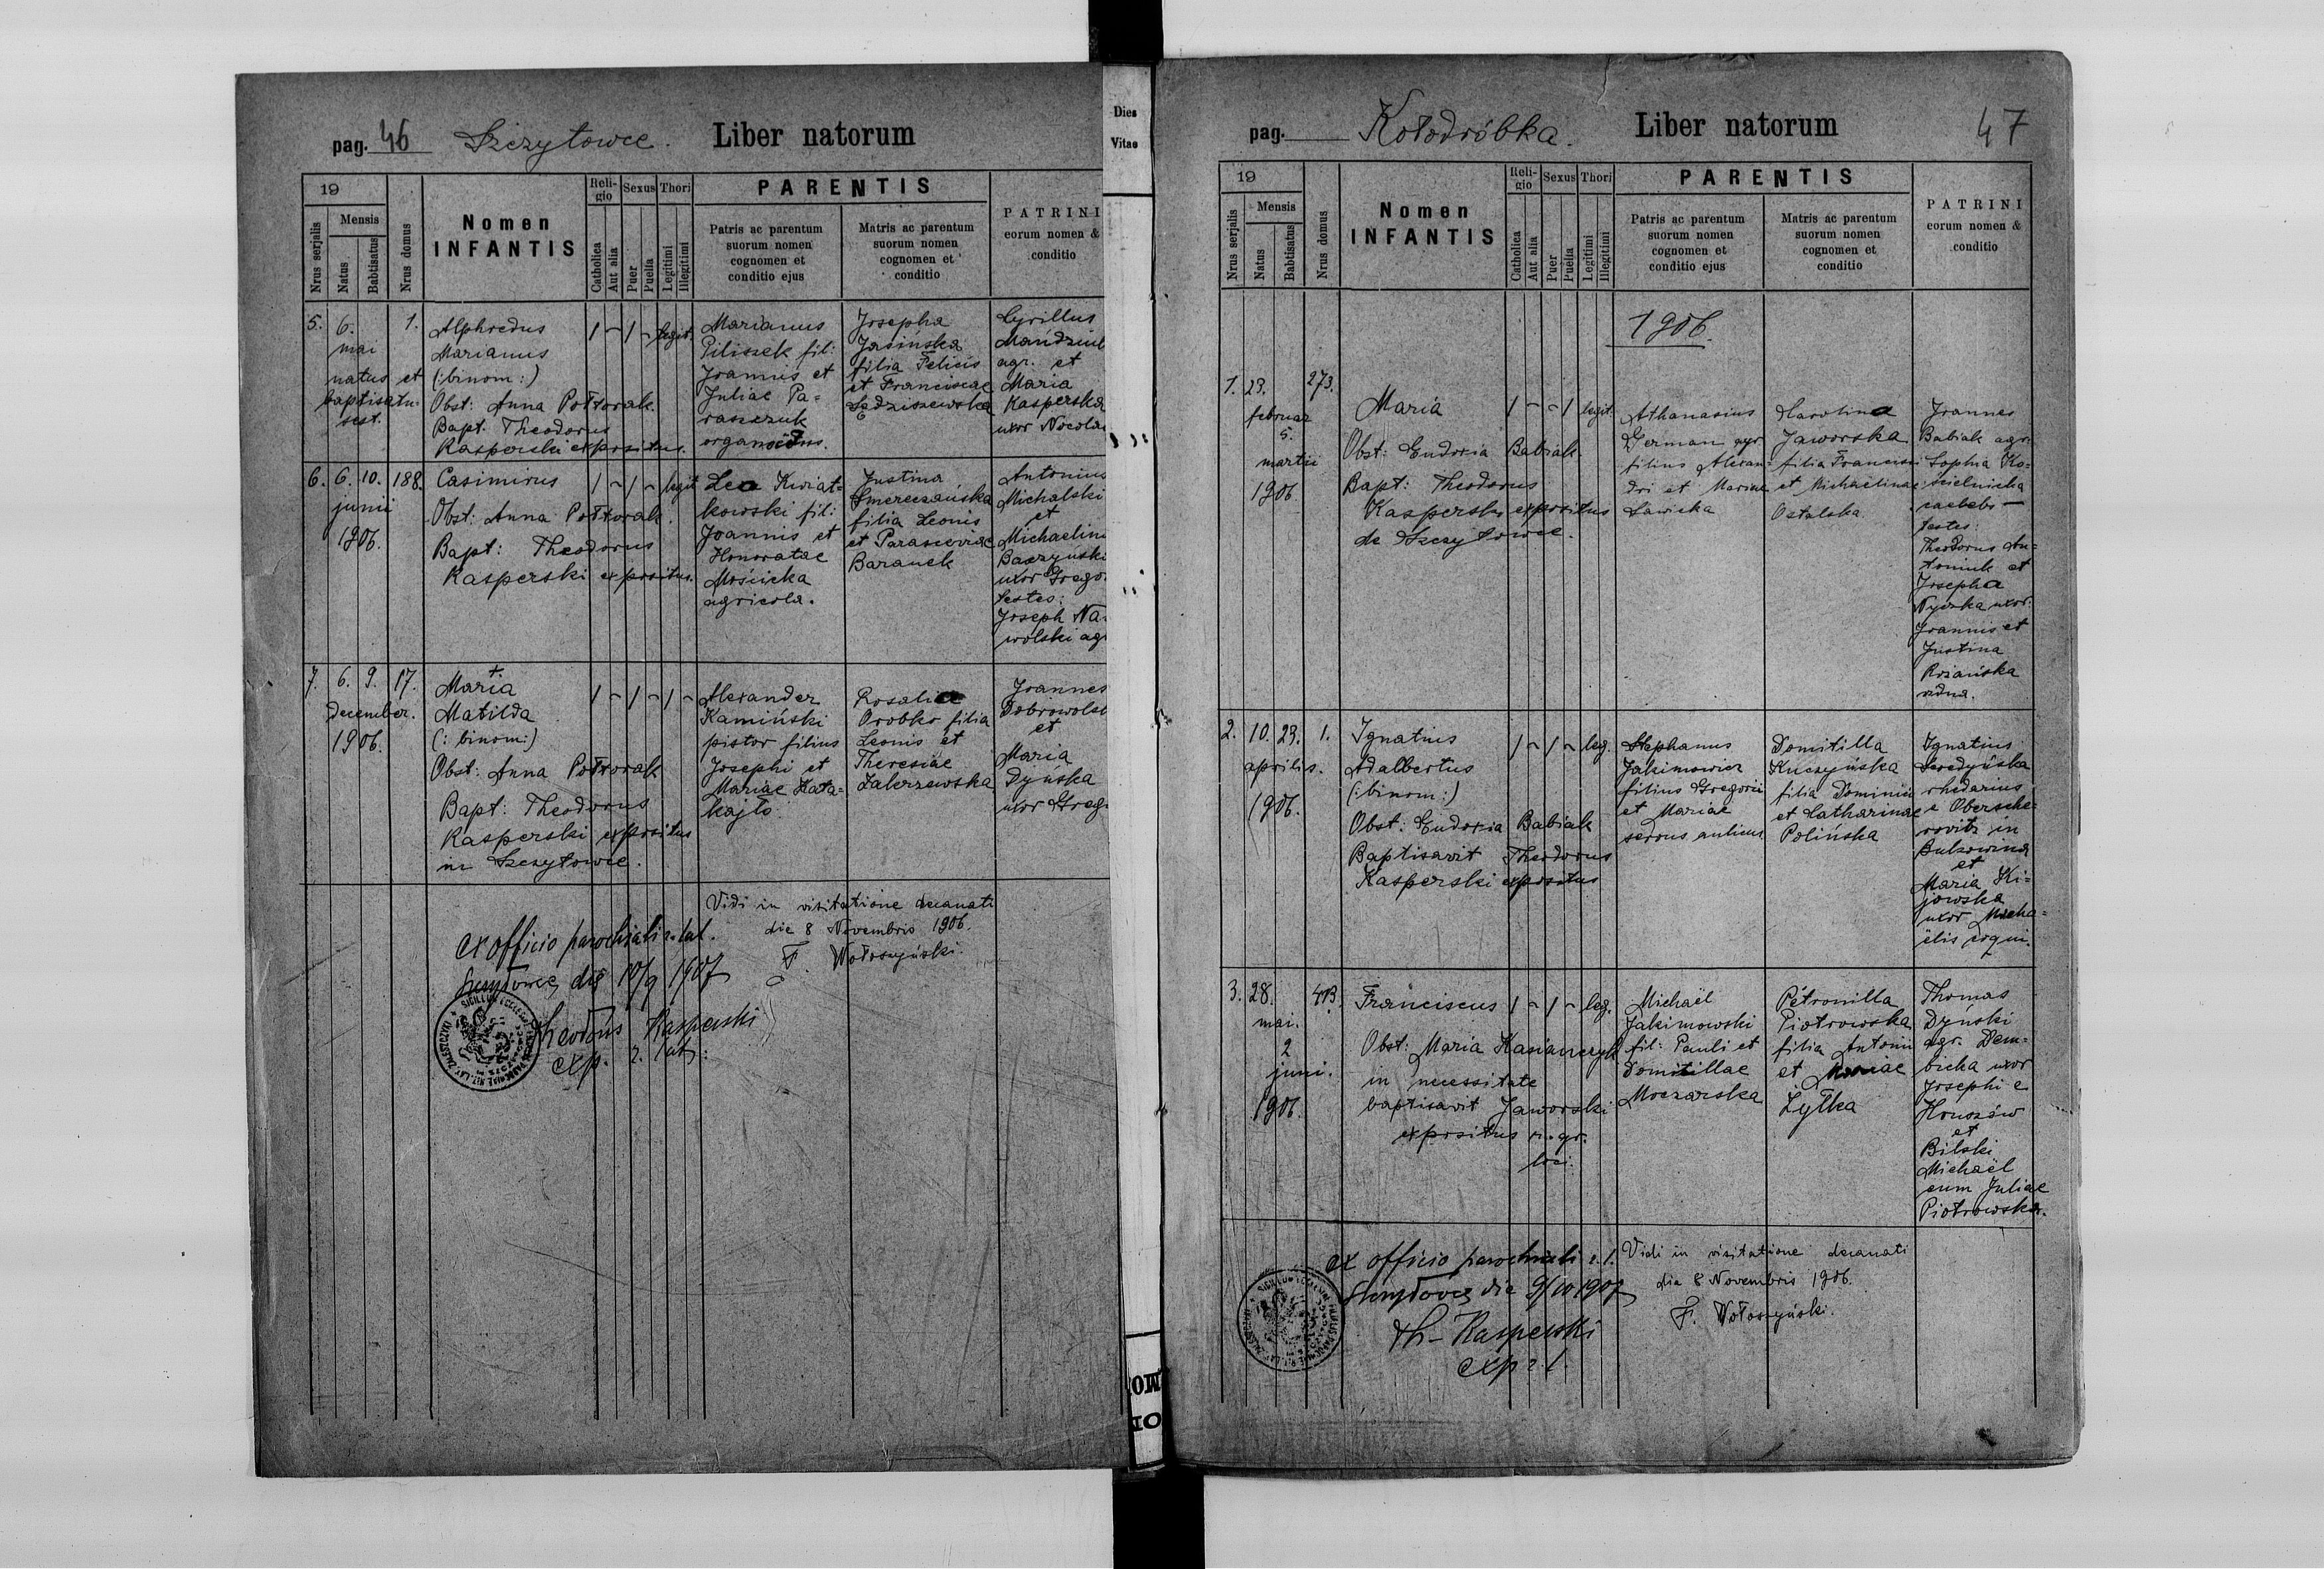 pag. 46 Szczytowce. Liber natorum
19
Nrus serjalis
Mensis
Natus
Babtisatus
Nrus domus
Nomen
INFANTIS
Reli-
gio
Catholica
Aut alia
Sexus
Puer
Puella
Thori
Legitimi
Illegitimi
PARENTIS
Patris ac parentum
suorum nomen
cognomen et
conditio ejus
Matris ac parentum
suorum nomen
cognomen et
conditio
PATRINI
eorum nomen &
conditio
5. 6. 1.
mai
natus et
baptisatus
est.
Alphredus
Marianus
(: binom :)
Obst: Anna Półtorak.
Bapt. Theodorus
Kasperski expositus.
1 ~ 1 ~ legit.
Marianus
Piliszek fil:
Joannis et
Juliae Pa=
raszczuk
Josepha
Jasińska
filia Felicis
et Franciscae
Sędziszewska
Cyrillus
agr. et
Maria
Kasperska
6. 6. 10. 188.
junii
1906.
Casimirus
Obst: Anna Półtorak.
Bapt: Theodorus
Kasperski expositus.
1 ~ 1 ~ legit
Leo Kwiat=
kowski fil:
Joannis et
Honoratae
Mościcka
agricola.
Justina
Smereczańska
filia Leonis
et Parascevae
Baranek
Antonius
Michalski
et
uxor Grego
testes:
Joseph Na
wolski agr
7. 6. 9. 17.
december.
1906.
Maria
Matilda
(: binom :)
Obst: Anna Półtorak
Bapt: Theodorus
Kasperski expositus
in Szczytowce.
1 ~ 1 ~ 1 ~
Alexander
Kamiński
pistor filius
Josephi et
Mariae Kata=
kajło
Rosalia
Orobko filia
Leonis et
Theresiae
Zakrzewska
Joannes
Dobrowols
et
Maria
Dyńska
uxor Greg
Vidi in visitatione decanali
die 8 Novembris 1906.
F. Wołoszyński.
ex officio parochiali r. lat.
Szczytowce die 10/9 1907
Theodorus Kasperski
exp. r. lat:
Dies
Vitae
pag. Kołodróbka. Liber natorum 47
19
Nrus serjalis
Mensis
Natus
Babtisatus
Nrus domus
Nomen
INFANTIS
Reli-
gio
Catholica
Aut alia
Sexus
Puer
Puella
Thori
Legitimi
Illegitimi
PARENTIS
Patris ac parentum
suorum nomen
cognomen et
conditio ejus
Matris ac parentum
suorum nomen
cognomen et
conditio
PATRINI
eorum nomen &
conditio
1906.
1. 23. 273.
februar
5.
martii
1906.
Maria
Obst: Eudoxia Babiak.
Bapt: Theodorus
Kasperski expositus
de Szczytowce.
1 ~ ~ 1 legit.
Athanasius
German agr.
filius Alexan=
dri et Mariae
Sawicka
Carolina
Jaworska
filia Francisci
et Michaelinae
Ostalska
Joannes
Babiak agr.
Sophia Ko=
ścielnicka
caelebs —
testes:
Theodorus An=
toniuk et
Josepha
Nyczka uxor.
Joannis et
Justina
Rożańska
vidua.
2. 10. 23. 1.
aprilis.
1906.
Ignatius
Adalbertus
(: binom :)
Obst: Eudoxia Babiak
Baptisavit Theodorus
Kasperski expositus
1 ~ 1 ~ leg.
Stephanus
Jakimowicz
filius Gregorii
et Mariae
servus aulicus
Domitilla
Kuczyńska
filia Dominici
et Catharinae
Polińska
Ignatius
rhedarius
e Obersche=
rovitz in
Bukowina
et
Maria Ki=
jowska
uxor Micha=
ëlis coqui.
3. 28. 413.
mai.
2
juni.
1906.
Franciscus
Obst: Maria Kasianczyk
in necessitate
baptisavit Jaworski
expositus r. gr.
loci.
1 ~ 1 ~ leg.
Michaël
Jakimowski
fil: Pauli et
Domitillae
Moczarska
Petronilla
Piotrowska
filia Antonii
et Mariae
Żyłka
Thomas
Dyński
agr. Dem=
bicka uxor
Josephi e
Hruszów
et
Bilski
Michaël
cum Juliae
Piotrowska.
ex officio parochiali r. l.
Szczytowce die 9/10 1907
Th. Kasperski
exp r. l.
Vidi in visitatione decanali
die 8 Novembris 1906.
F. Wołoszyński.